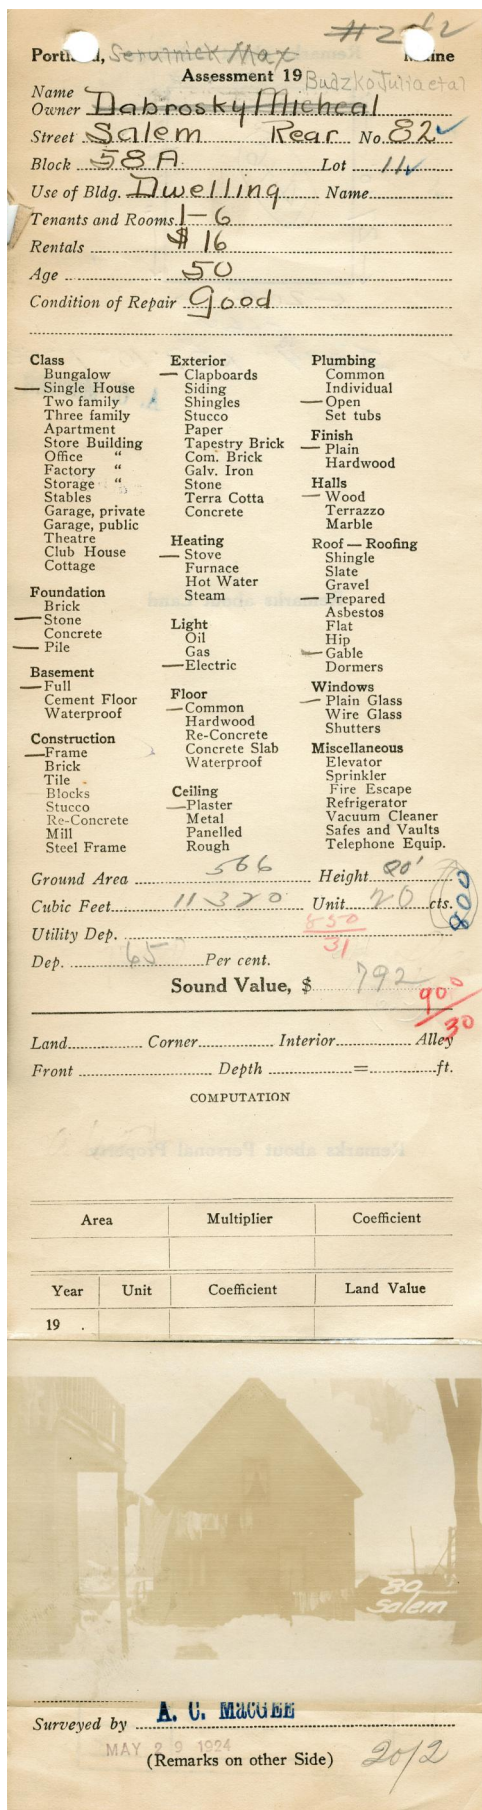 #2 of 2
Portland, Serutnick Max Maine
Assessment 19 Budzko Julia etal
Name
Owner Dabrosky Micheal
Street Salem Rear No. 82
Block 58A Lot 11
Use of Bldg. Dwelling Name
Tenants and Rooms 1-6
Rentals $16
Age 50
Condition of Repair Good
Class
Bungalow
Single House
Two family
Three family
Apartment
Store Building
Office "
Factory "
Storage "
Stables
Garage, private
Garage, public
Theatre
Club House
Cottage
Foundation
Brick
Stone
Concrete
Pile
Basement
Full
Cement Floor
Waterproof
Construction
Frame
Brick
Tile
Blocks
Stucco
Re-Concrete
Mill
Steel Frame
Exterior
Clapboards
Siding
Shingles
Stucco
Paper
Tapestry Brick
Com. Brick
Galv. Iron
Stone
Terra Cotta
Concrete
Heating
Stove
Furnace
Hot Water
Steam
Light
Oil
Gas
Electric
Floor
Common
Hardwood
Re-Concrete
Concrete Slab
Waterproof
Ceiling
Plaster
Metal
Panelled
Rough
Plumbing
Common
Individual
Open
Set tubs
Finish
Plain
Hardwood
Halls
Wood
Terrazzo
Marble
Roof — Roofing
Shingle
Slate
Gravel
Prepared
Asbestos
Flat
Hip
Gable
Dormers
Windows
Plain Glass
Wire Glass
Shutters
Miscellaneous
Elevator
Sprinkler
Fire Escape
Refrigerator
Vacuum Cleaner
Safes and Vaults
Telephone Equip.
Ground Area 566 Height 20'
Cubic Feet 11320 Unit 20 cts. 800
Utility Dep. 850
31
Dep. 65 Per cent.
Sound Value, $ 792
900
30
Land Corner Interior Alley
Front Depth = ft.
COMPUTATION
Area Multiplier Coefficient
Year Unit Coefficient Land Value
19 .
80
Salem
Surveyed by A. C. MacGEE
MAY 29 1924
(Remarks on other Side) 2 of 2